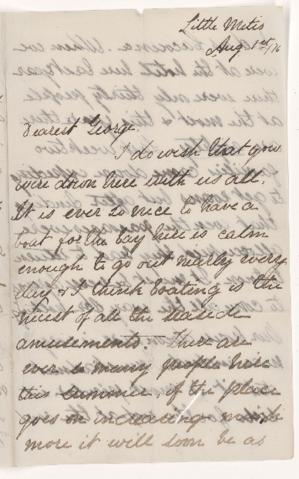 Little Metis
Aug 1st/76
Dearest George.
I do wish that you
were down here with us all.
It is ever so nice to have a
boat for the bay here is calm
enough to go out nearly every
day & I think boating is the
nicest of all the seaside
amusements. There are
ever so many people here
this summer if the place
goes on increasing
more it will soon be as